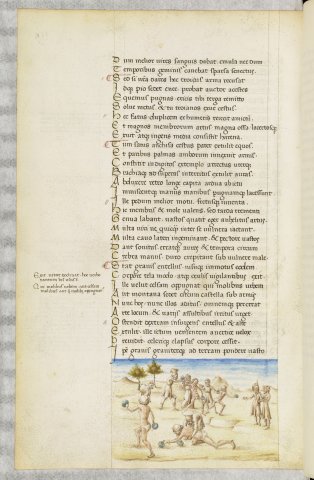 Dum melior uires sanguis dabat emula nec dum
Temporibus geminis canebat sparsa senectus
Sed si nra dares hec troius arma recusat
Idque pio sedet enee probat auctor acestes
Equemus pugnas ericis tibi terga remitto
Solue metus et tu troianos exue cestus
Hec fatus duplicem ex humeris reiecit amictum
Et magnos membrorum artus magna ossa lacertosque
Exuit atque ingens media consistit harena
Tum satus anchisa cestus pater extulit equos
Et paribus palmas amborum innexuit armis
Constitit in digitos extemplo arrectus uterque
Brachiaque ad superas interritus extulit auras
Abduxere retro longe capita ardua ab ictu
Immiscentque manus manibus pugnamque lacessunt
Ille pedum melior motu fretusque iuuenta
Hic membris et mole ualens sed tarda trementi
Genua labant uastos quatit eger anhelitus artus
Multa uiri nequicquam inter se uulnera iactant
Multa cauo lateri ingeminant et pectore uastos
Dant sonitus erratque aures et tempora circum
Crebra manus duro crepitant sub uulnere male
Stat grauis entellus nisuque immotus eodem
Corpore tela modo atque oculis uigilantibus exit
Ille uelut celsam oppugnat qui molibus urbem
Aut montana sedet circum castella sub armis
Nunc hos nunc illos aditus omnemque pererrat
Arte locum et uariis assultibus irritus urget
Ostendit dextram insurgens entellus et alte
Extulit ille ictum uenientem a uertice uelox
Preuidit celerique elapsus corpore cessit
Ipse grauis grauiterque ad terram pondere uasto